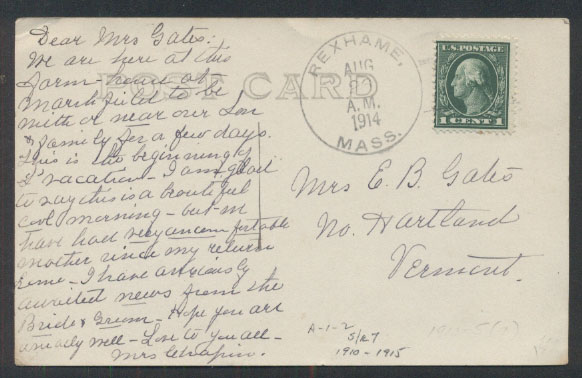 Dear Mrs Gates:
We are here at this
farm-house at
Marshfield to be
with or near our Son
& family for a few days.
This is the beginning of
vacation - I am glad
to say this is a beautiful
cool morning - but we
have had very uncomfortable
weather since my return
home - I have anxiously
awaited news from the
Bride & Groom - Hope you are
all well - Love to you all -
Mrs Chapin.
POST CARD
REXHAME,
AUG
A.M.
1914
MASS.
U.S. POSTAGE
1 CENT 1
Mrs E. B. Gates
No. Hartland
Vermont.
A-1-2
S/R7
1910-1915